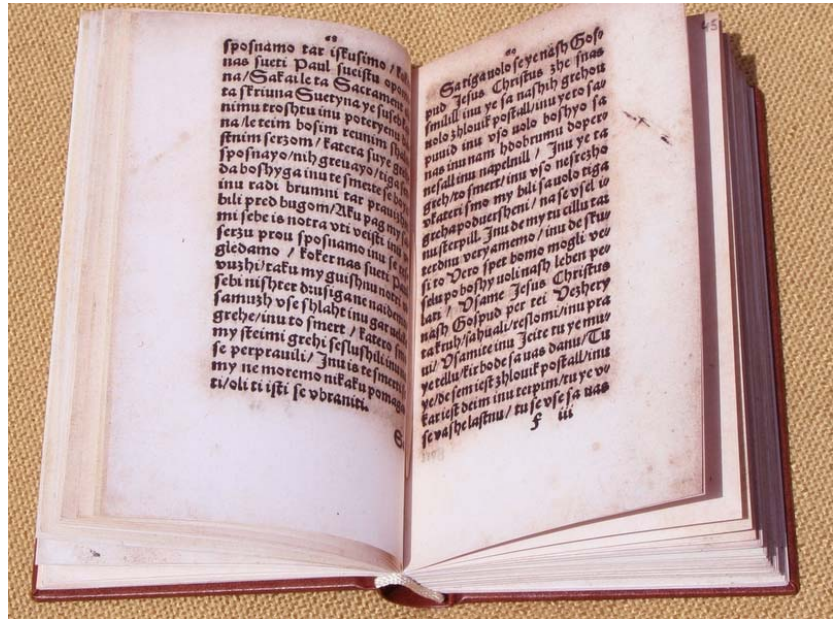 sposnamo tar iskusimo /
nas sueti Paul sueistu
na/Sakaile ta Sacrament
ta skriuna Suetyna ye
nimu troshtu inu poteryenu
na/le teim bosim reunim
stnim serzom/katera suye
sposnayo/nih greuayo/
da boshyga inu te smerte se
inu radi brumni tar
bili pred bugom/Aku pag my
mi sebe is notra vti veisti inu
serzu prou sposnamo inu se
gledamo / koker nas sueti Paul
vuzhi/taku my guishnu notri
sebi nishter drusigane
samuzh vse shlaht inu gar
grehe/inu to smert / katero
my steimi grehi seslushili
se perprauili/ Inu is te smerti
my ne moremo nikaku
ti/oli ti isti se vbraniti.
45
Satiga uolo se ye nash Gos-
pud Jesus Christus zhes nas
smilil inu ye sa nashih grehou
uolo zhlouik postall/inu ye to sa-
puuid inu vso uolo boshyo sa
nas inu nam hdobrumu doper-
nesall inu napelnill / Inu ye ta
greh/to smert/ inu vso nesrezho
vkateri smo my bili sa uolo tiga
greha poduersheni / na se vsel i-
nu sterpill. Inu de my tu cillu tar
terdnu veryamemo/inu de sku-
si to Vero spet bomo mogli ve-
selu po boshy uoli nash leben pe-
lati / Vsame Jesus Christus
nash Gospud per tei Vezhery
ta kruh/sahuali/reslomi/inu pra
vi/ Vsamite inu Jeite tu ye mu-
ye tellu/kir bode sa uas danu/Tu
ye/de sem iest zhlouik postall/inu
kar iest deim inu terpim/tu ye vse
se vashe lastnu/ tu se vse sa uas
f iii